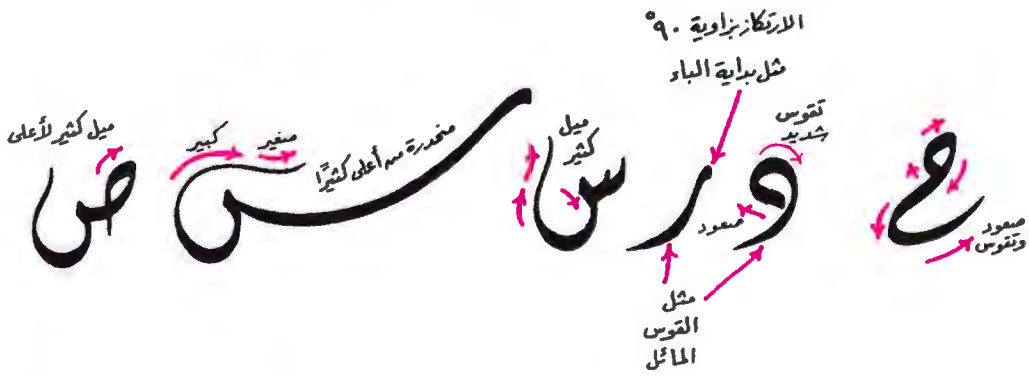 الارتكاز بزاوية ٩٠°
مثل بداية الباء
تقوس
شديد
ح
صعود
وتقوس
د
صعود
ر
مثل
القوس
المائل
ميل
كثير
س
منحدرة من أعلى كثيرًا
صغير
كبير
س
ميل كثير لأعلى
ص